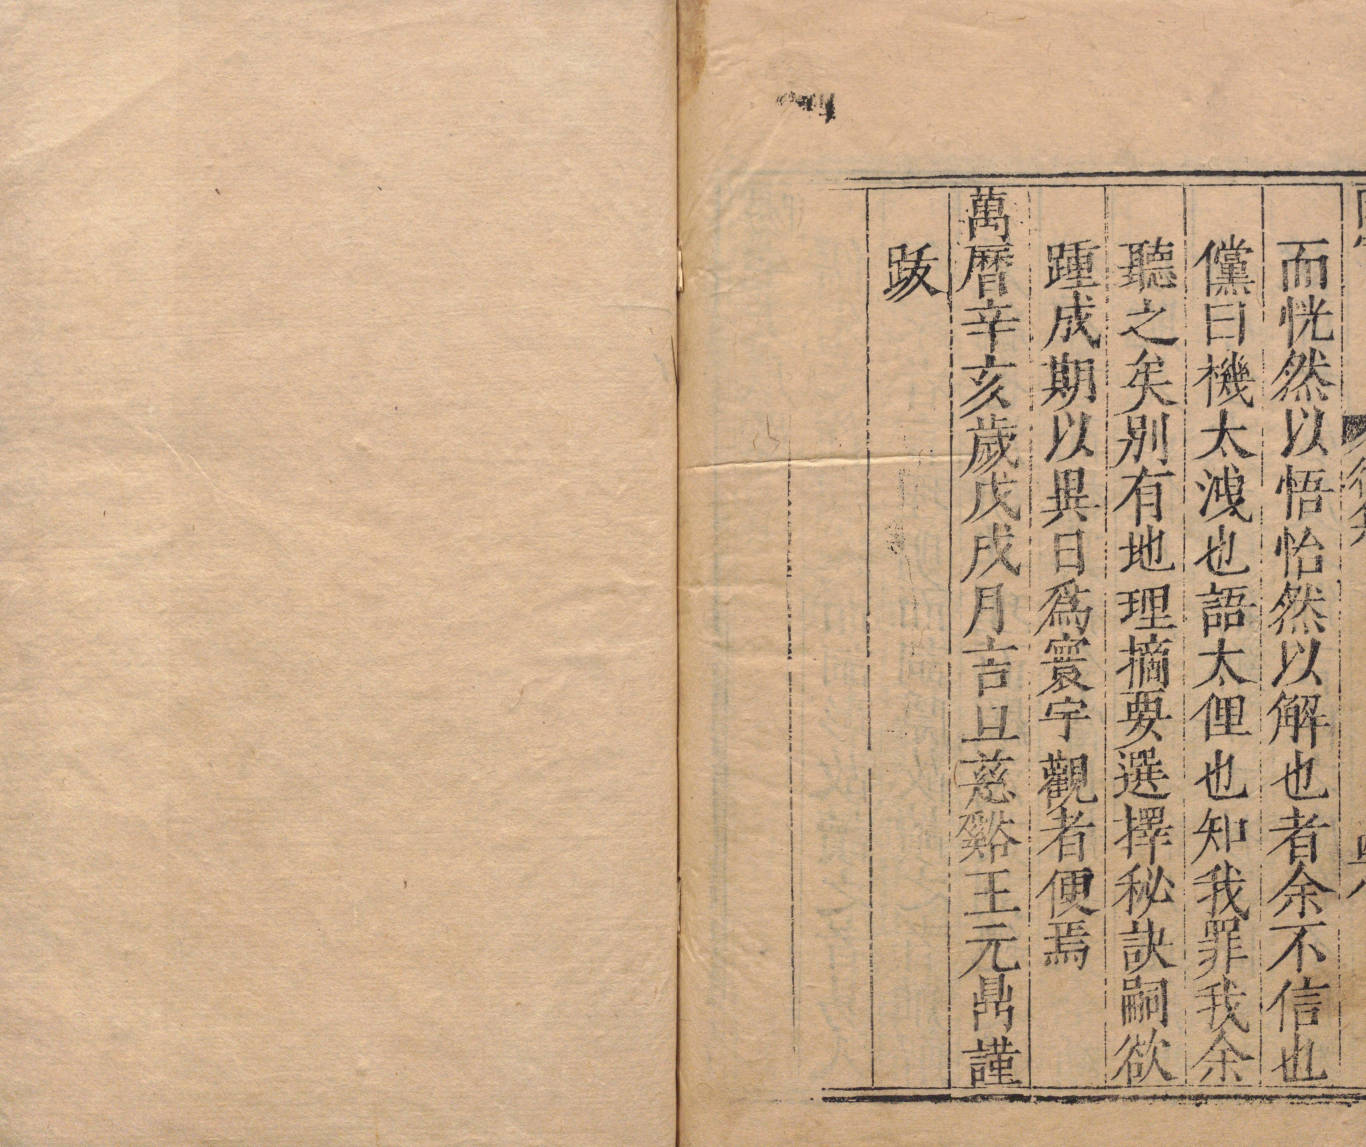 而恍然以悟怡然以解也者余不信也
儻曰機太洩也語太俚也知我罪我余
聽之矣別有地理摘要選擇秘訣嗣欲
踵成期以異日爲寰宇觀者便焉
萬曆辛亥歲戊戌月吉旦慈谿王元鼎謹
跋